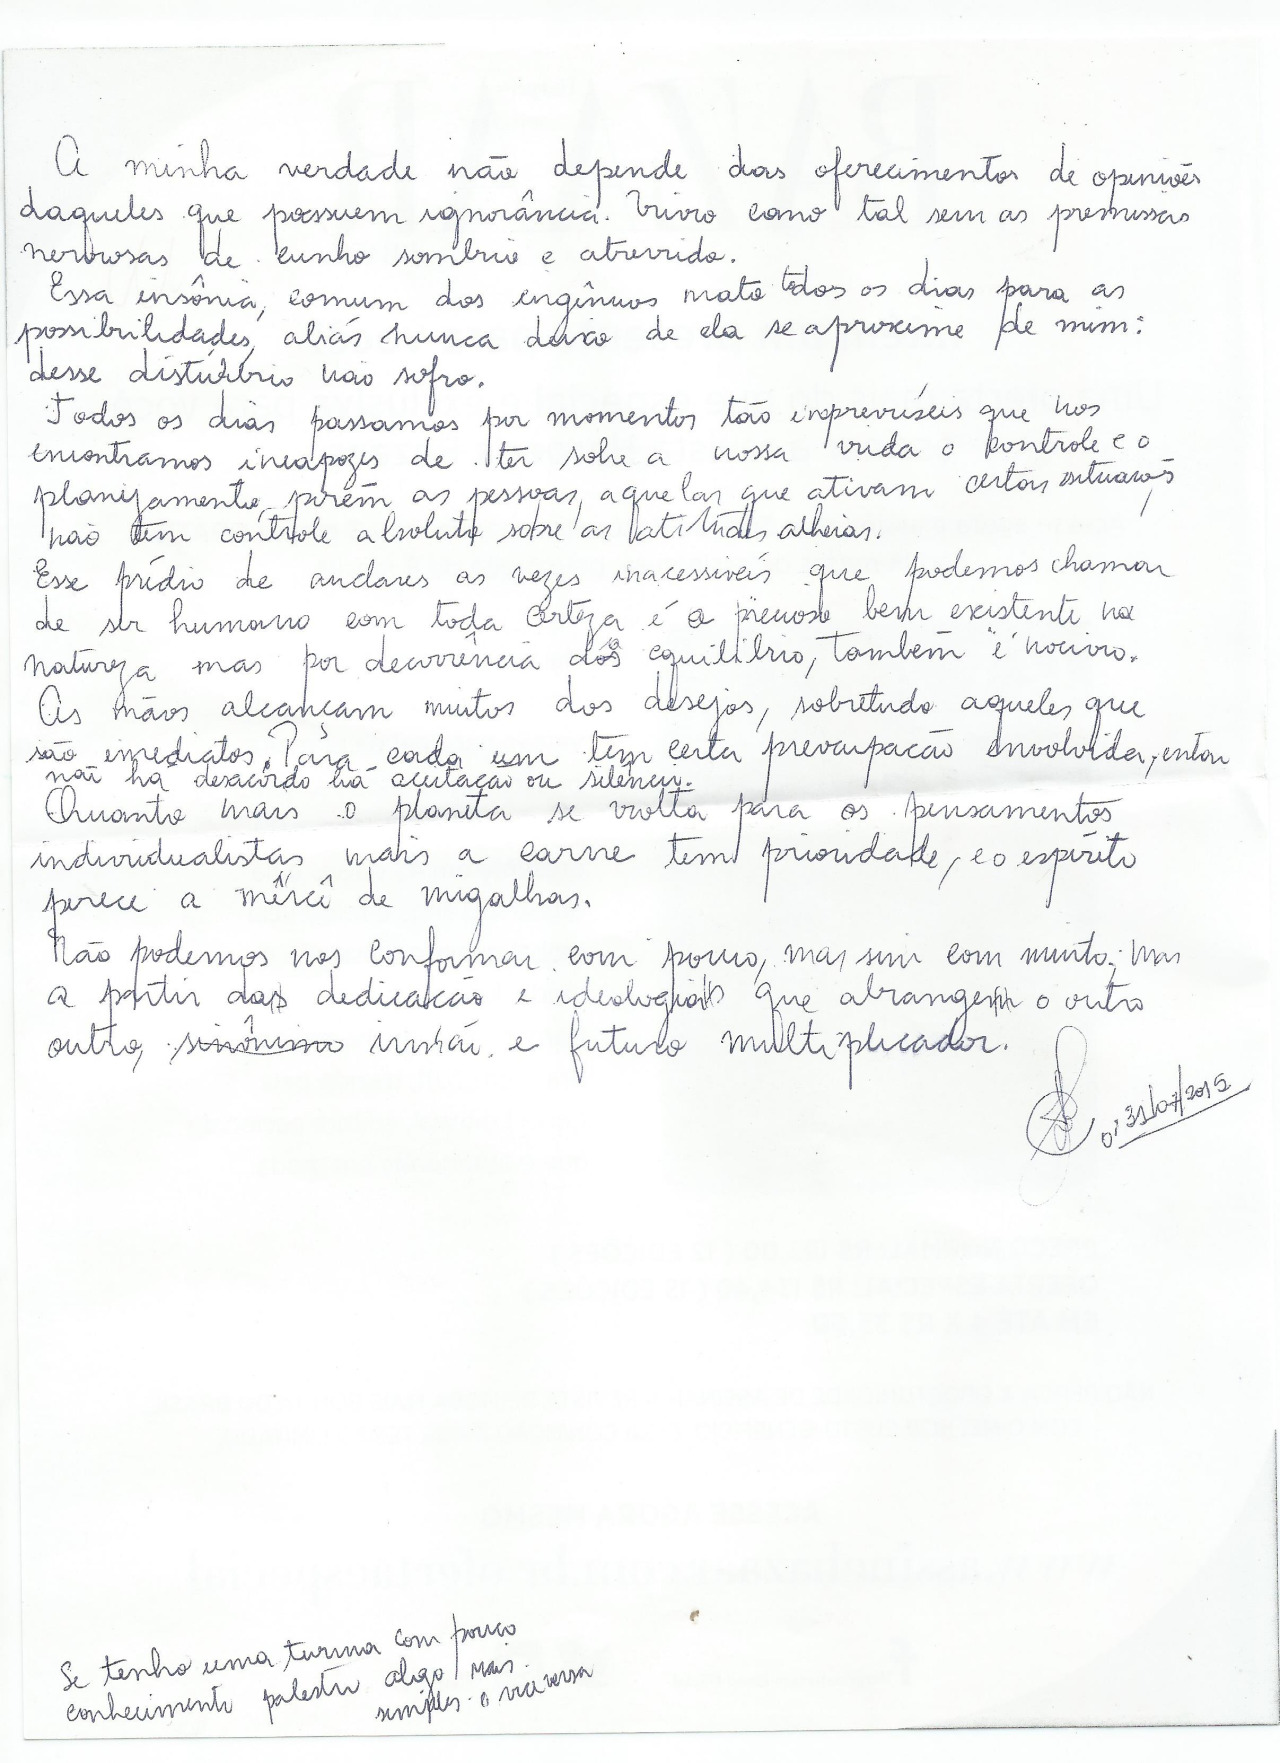 A minha verdade não depende dos oferecimentos de opiniões
daqueles que possuem ignorância. Vivo como tal sem as premissas
nervosas de cunho sombrio e atrevido.
Essa insônia, comum dos ingênuos mato todos os dias para as
possibilidades, aliás nunca deixo de ela se aproxime de mim:
desse distúrbio não sofro.
Todos os dias passamos por momentos tão imprevisíveis que nos
encontramos incapazes de ter sobre a nossa vida o controle e o
planejamento, porém as pessoas, aquelas que ativam certas situações,
não tem controle absoluto sobre as atitudes alheias.
Esse prédio de andares as vezes inacessíveis que podemos chamar
de ser humano com toda certeza é o precioso bem existente na
natureza mas por decorrência do equilíbrio, também é nocivo.
As mãos alcançam muitos dos desejos, sobretudo aqueles que
são imediatos. Para cada um tem certa preocupação envolvida, entao
não há desacordo há aceitação ou silêncio.
Quanto mais o planeta se volta para os pensamentos
individualistas mais a carne tem prioridade, e o espírito
perece a mercê de migalhas.
Não podemos nos conformar com pouco, mas sim com muito; mas
a partir da dedicação e ideologia que abrangem o outro
outro, sinônimo irmão e futuro multiplicador.
31/07/2015
Se tenho uma turma com pouco
conhecimento palestro algo mais
simples e vice versa